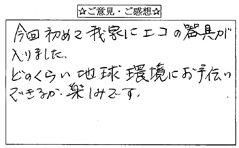 ☆ご意見・ご感想☆
今回初めて我家にエコの器具が
入りました。
どのくらい地球環境にお手伝い
できるか楽しみです。